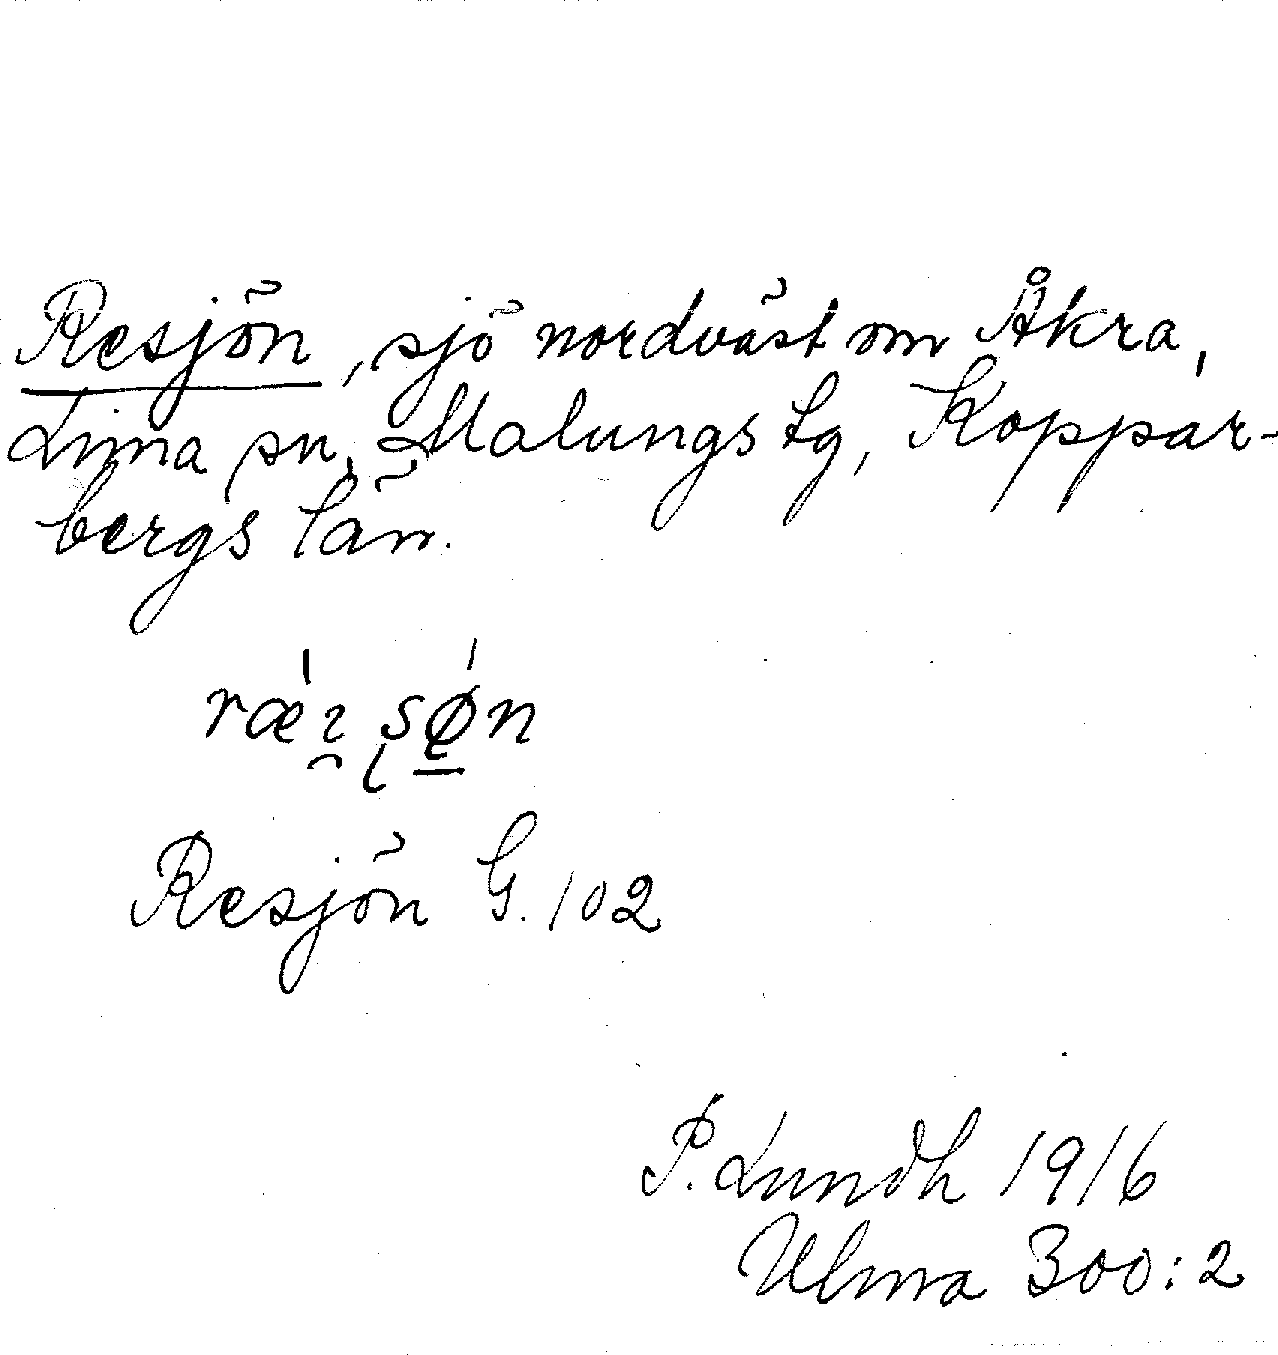 Resjön, sjö nordväst om Åkra,
Lima sn, Malungs tg, Koppar-
bergs län.
Resjön G. 102
P. Lundh 1916
Ulma 300:2